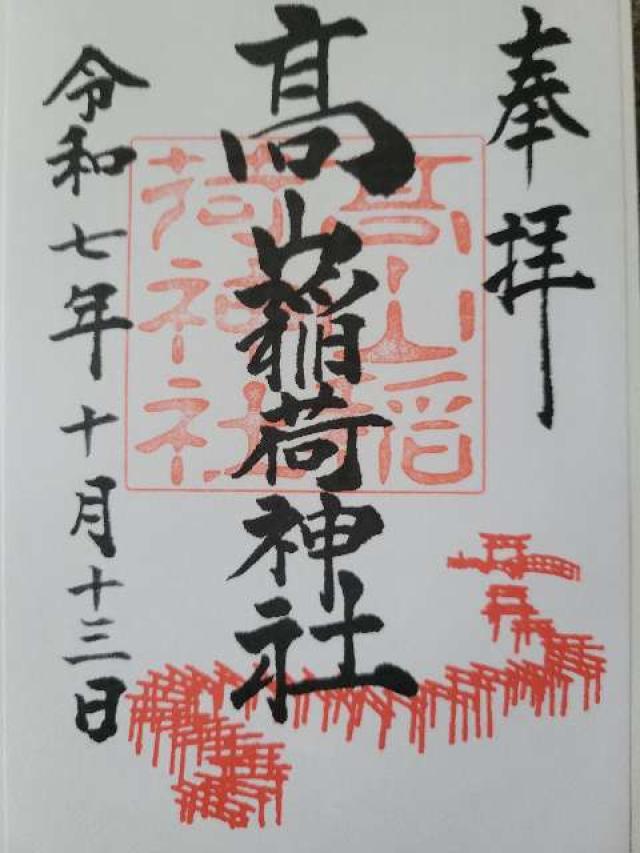 奉拝
髙山稲荷神社
令和七年十月十三日
高山稲
荷神社